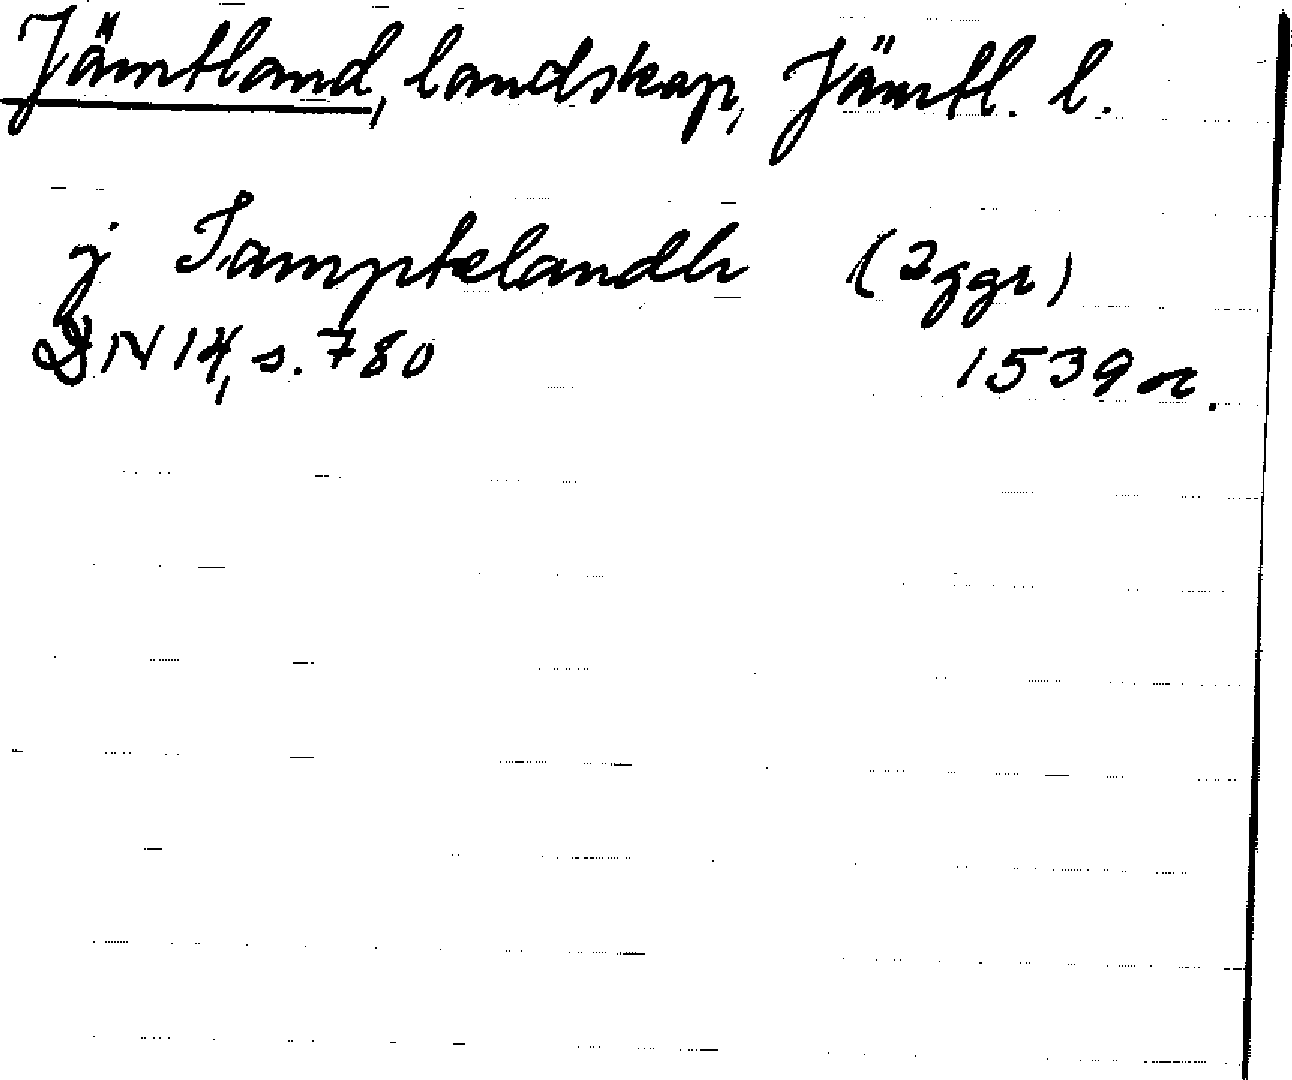 Jämtland, landskap, Jämtl. l.
j Iamptelandh (2 ggr)
DN 14, s. 780 1539 or.